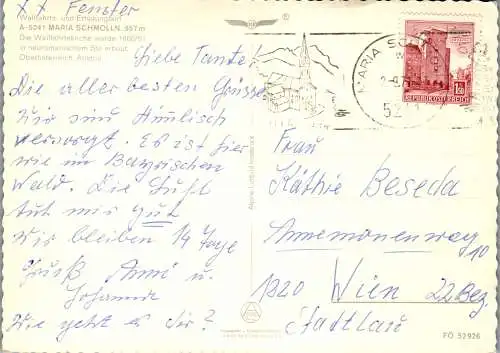 XX Fenster
Wallfahrts- und Erholungsort
A-5241 MARIA SCHMOLLN, 557 m
Die Wallfahrtskirche wurde 1860/61
in neuromanischem Stil erbaut.
Oberösterreich, Austria
Liebe Tante!
Die aller besten Grüsse
Wir sind
versorgt. Es ist hier
wie im Bayrischen
Wald. Die Luft
tut mir gut
Wir bleiben 14 Tage
Gruß Anni u.
Johanna
Wie geht es Dir?
MARIA
52
1.50
REPUBLIK ÖSTERREICH
Frau
Käthie Beseda
Annemonenweg
10
1220 Wien 22 Bez.
Stadtlau
FÖ 52926